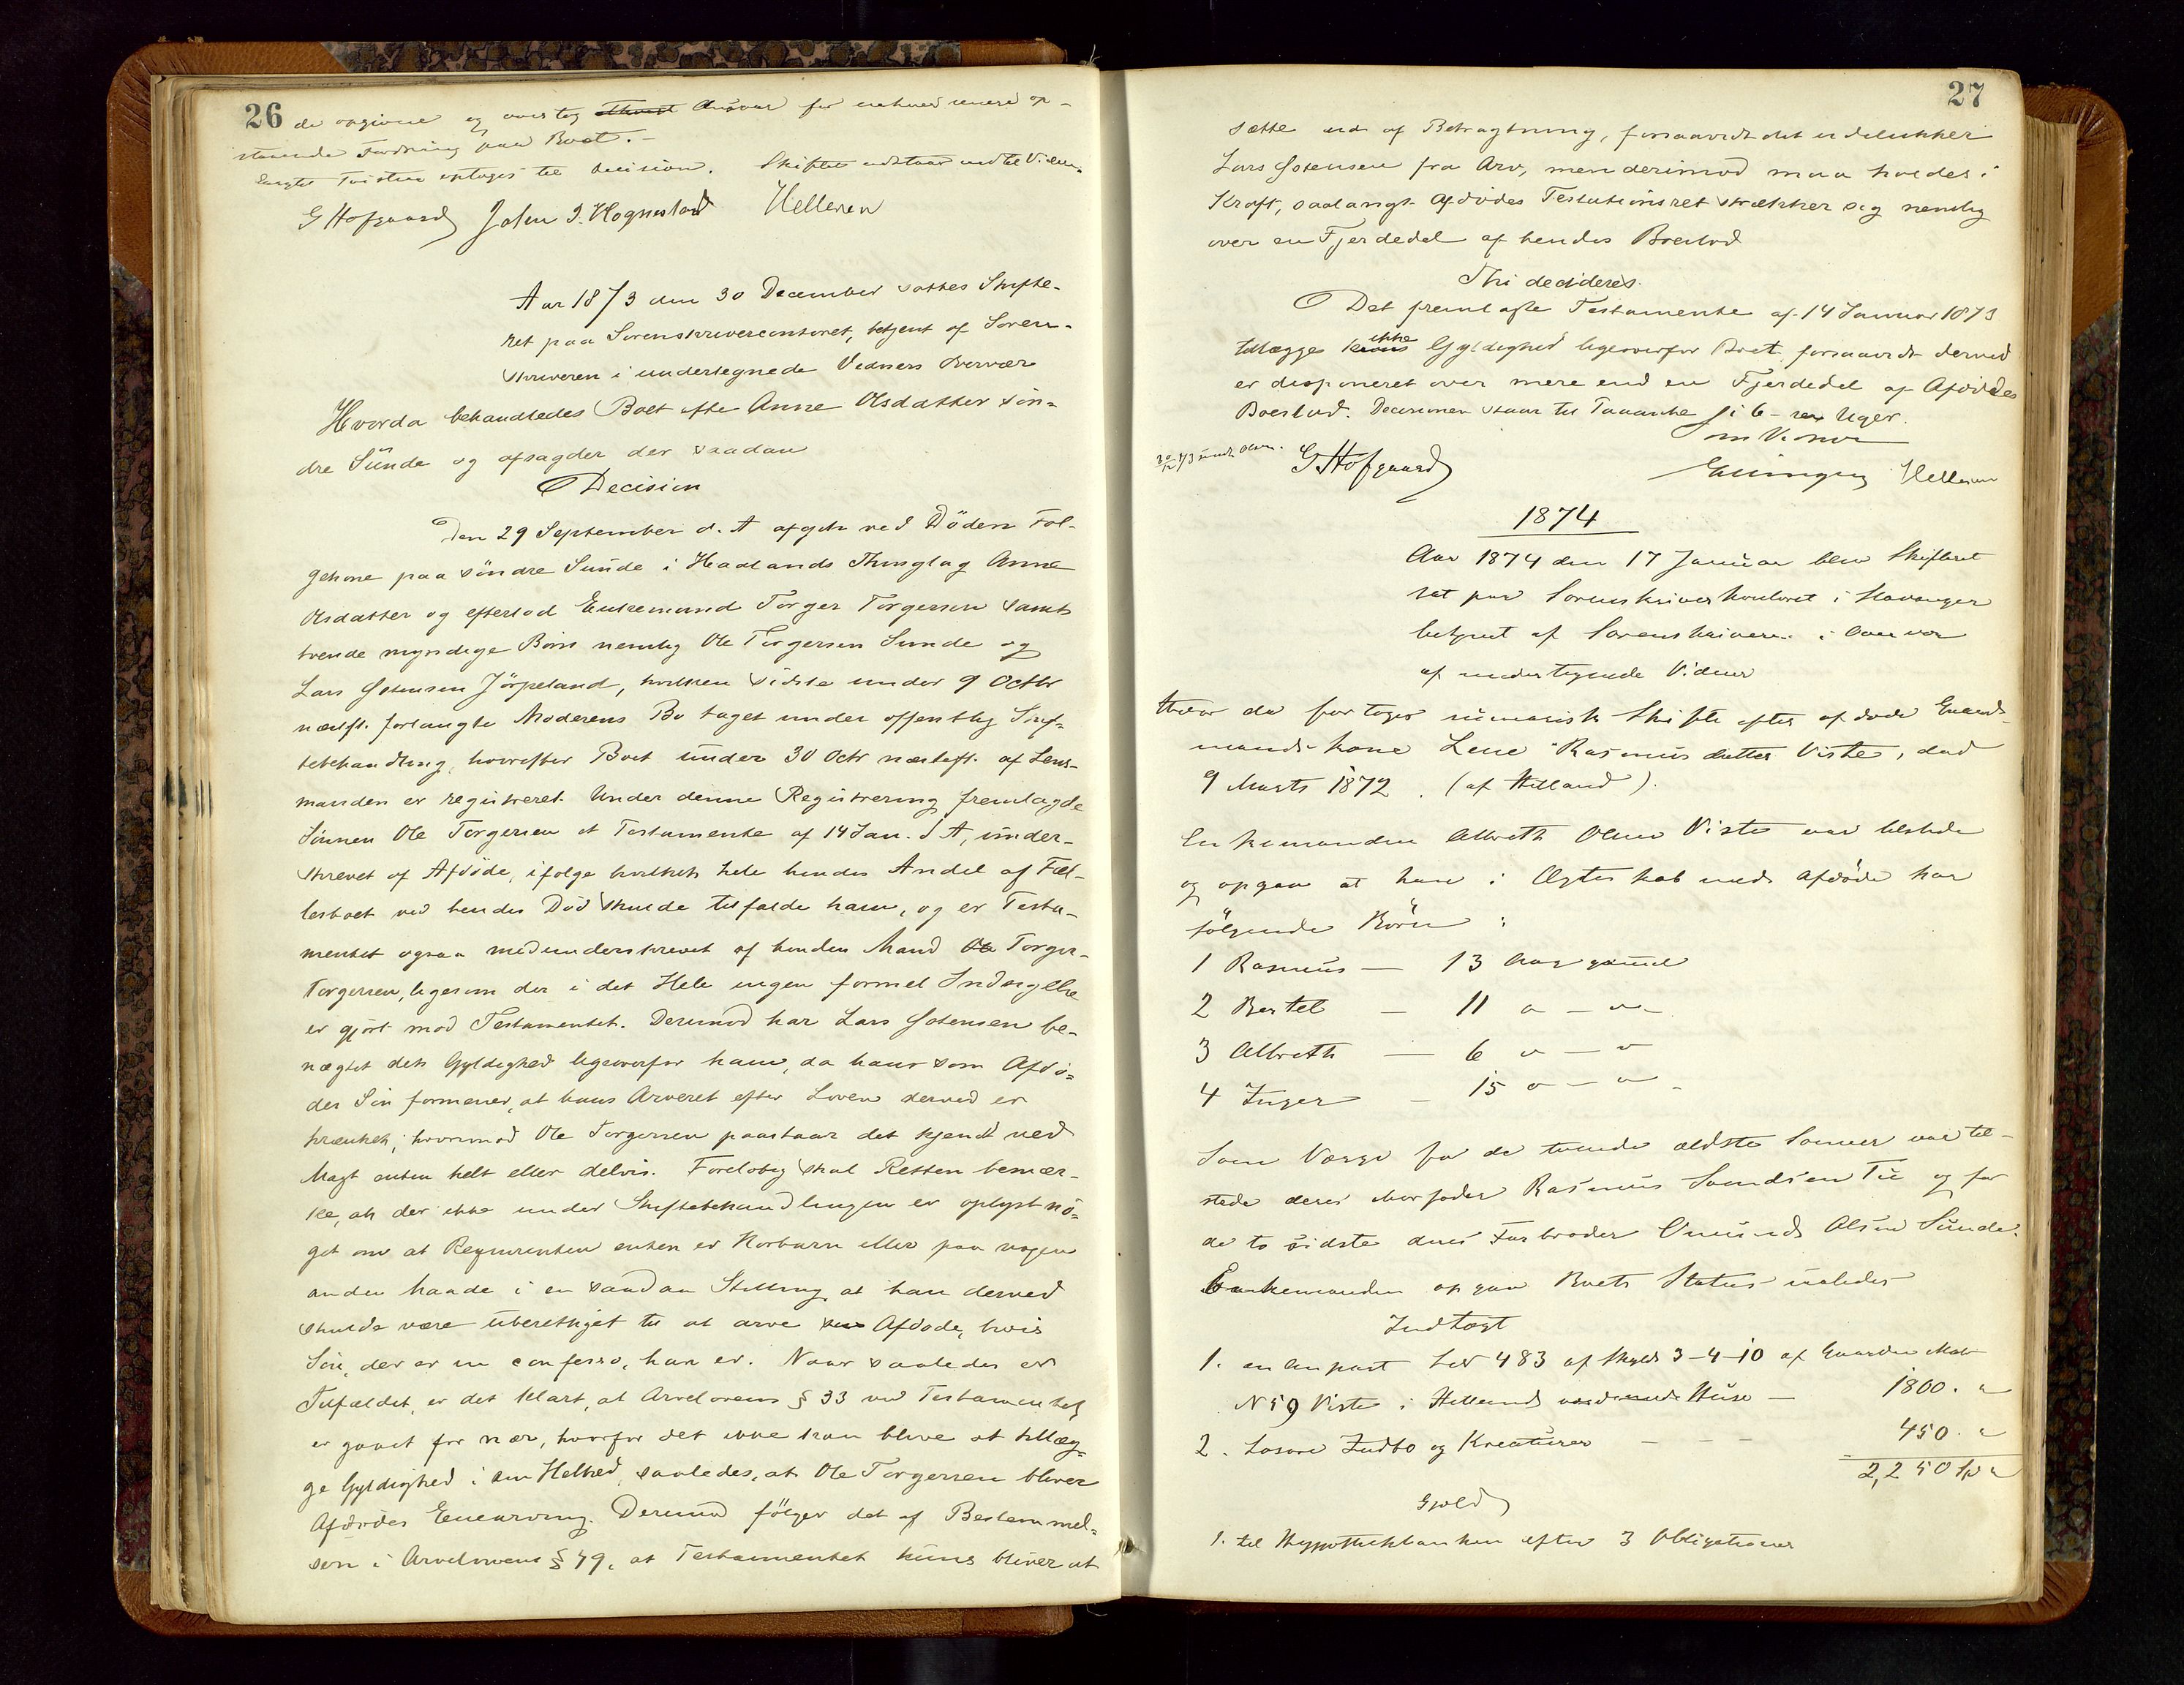 26
de opgivne og overtog Ansvar for enhver senere op-
staaende Fordring paa Boet.-
Skiftet udstaar
G Hofgaard John I. Hognestad Helleren
Aar 1873 den 30 December sattes Skifte-
ret paa Sorenskrivercontoret, betjent af Soren-
skriveren i undertegnede Vidners Overvær
Hvorda behandledes Boet efter Anne Olsdatter søn-
dre Sunde og afsagdes der saadan
Decision
Den 29 September d. A afgik ved Døden Fol-
gekone paa søndre Sunde i Haalands Thinglag Anne
Olsdatter og efterlod Enkemand Torger Torgersen samt
tvende myndige Børn nemlig Ole Torgersen Sunde og
Lars Gotensen Jørpeland, hvilken sidste under 9 Octbr
næstf. forlangte Moderens Bo taget under offentlig Skif-
tebehandling, hvorefter Boet under 30 Octr næsteft. af Lens-
manden er registreret. Under denne Registrering fremlagde
Sønnen Ole Torgersen et Testamente af 14 Jan. d A, under-
skrevet af Afdøde, ifølge hvilket hele hendes Andel af Fæl-
lesboet ved hendes Død skulde tilfalde ham, og er Testa-
mentet ogsaa medunderskrevet af hendes Mand Ole Torger
Torgersen, ligesom der i det Hele ingen formel Indsigelse
er gjort mod Testamentet. Derimod har Lars Gotensen be-
nægtet dets Gyldighed ligeoverfor ham, da han som Afdø-
des Søn formener, at hans Arveret efter Loven derved er
krænket; hvorimod Ole Torgersen paastaar det kjendt ved
Magt enten helt eller delvis. Foreløbig skal Retten bemær-
ke, at der ikke under Skiftebehandlingen er oplyst no-
get om at Reqvirenten enten er Horbarn eller paa nogen
anden Maade i en saadan Stilling at han derved
skulde være uberettiget til at arve Afdøde, hvis
Søn, der er in confesso, han er. Naar saaledes er
Tilfældet, er det klart, at Arvelovens § 33 ved Testamentet
er gaaet for nær, hvorfor det ikke kan blive at tillæg-
ge Gyldighed i sin Helhed, saaledes, at Ole Torgersen bliver
Afdødes Enearving. Derimod følger det af Bestemmel-
sen i Arvelovens § 49, at Testamentet kuns bliver at
27
sætte ud af Betragtning, forsaavidt det udelukker
Lars Gotensen fra Arv, men derimod maa holdes i
Kraft, saalangt Afdødes Testationsret strækker sig nemlig
over en Fjerdedel af hendes Boeslod
Thi decideres.
Det fremlagte Testamente af 14 Januar 1873
tillægges ikke Gyldighed ligeoverfor Boet forsaavidt derved
er disponeret over mere end en Fjerdedel af Afdødes
Boeslod. Decisionen staar til Paaanke i 6 - sex Uger.
Som Vidner
G Hofgaard
Ellingsen Helleren
1874
Aar 1874 den 17 Januar blev Skifteret
sat paa Sorenskriverkontoret i Stavanger
betjent af Sorenskriveren i Overvær
af undertegnede Vidner
Hvor da foretoges summarisk Skifte efter afdøde Gaard-
mandskone Lene Rasmusdatter Viste, død
9 Marts 1872. (af Hetland).
Enkemanden Albreth Olsen Viste var tilstede
og opgav at have i Ægteskab med Afdøde har
følgende Børn:
1 Rasmus — 13 Aar gammel
2 Bertel — 11 " — "
3 Albreth — 6 " — "
4 Inger — 15 " — "
Som Værge for de tvende ældste Sønner var til-
stede deres Morfader Rasmus Tu og for
de to sidste deres Farbroder Omund Olsen Sunde.
Enkemanden opgav Boets Status saaledes
Indtægt
1. en Anpart Lnr 483 af Skyld 3-4-10 af Gaarden Matr
N 59 Viste i Hetland med Huse — 1800. "
2. Løsøre Indbo og Kreaturer — — — 450. "
2,250 Sp "
Gjeld
1. til Hypothekbanken efter 3 Obligationer